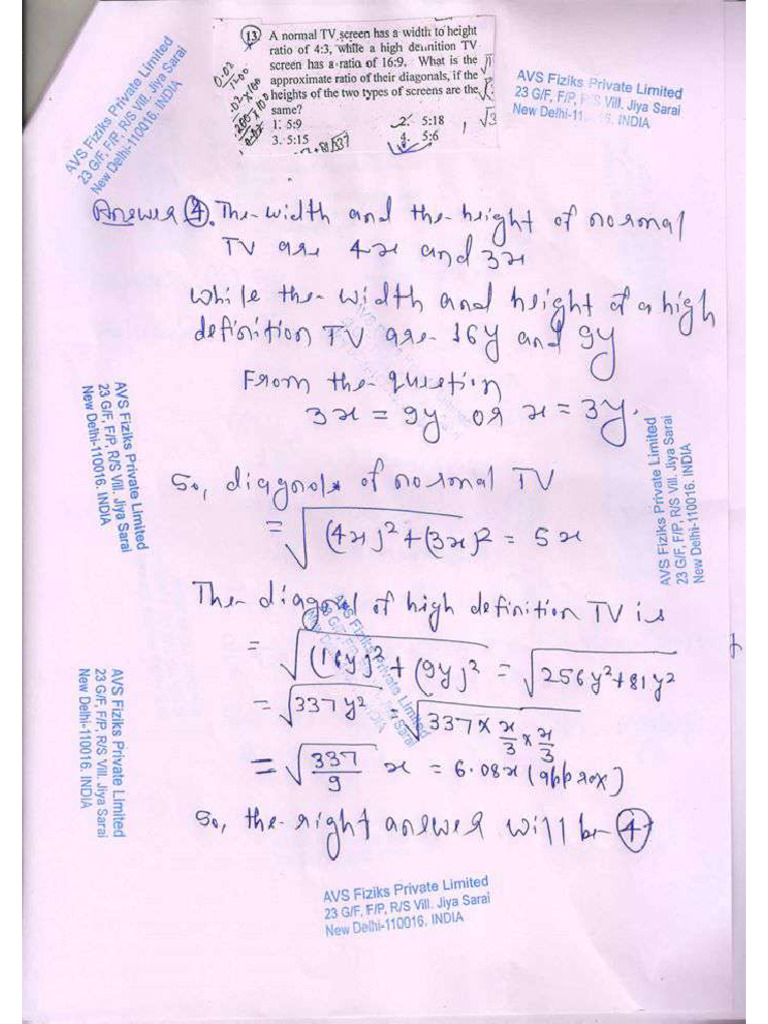 13 A normal TV screen has a width to height
ratio of 4:3, while a high definition TV
screen has a ratio of 16:9. What is the
approximate ratio of their diagonals, if the
heights of the two types of screens are the
same?
1. 5:9 2. 5:18
3. 5:15 4. 5:6
AVS Fiziks Private Limited
23 G/F, F/P, R/S Vill. Jiya Sarai
New Delhi-110016. INDIA
AVS Fiziks Private Limited
23 G/F, F/P, R/S Vill. Jiya Sarai
New Delhi-11 . INDIA
Answer 4. The width and the height of normal
TV are 4x and 3x
While the width and height of a high
definition TV are 16y and 9y
From the question
3x = 9y or x = 3y.
So, diagonal of normal TV
= √(4x)²+(3x)² = 5x
The diagonal of high definition TV is
= √(16y)²+(9y)² = √256y²+81y²
= √337y² = √337 × x/3 × x/3
= √337/9 x = 6.08x (approx)
So, the right answer will be 4
AVS Fiziks Private Limited
23 G/F, F/P, R/S Vill. Jiya Sarai
New Delhi-110016. INDIA
AVS Fiziks Private Limited
23 G/F, F/P, R/S Vill. Jiya Sarai
New Delhi-110016. INDIA
AVS Fiziks Private Limited
23 G/F, F/P, R/S Vill. Jiya Sarai
New Delhi-110016. INDIA
AVS Fiziks Private Limited
23 G/F, F/P, R/S Vill. Jiya Sarai
New Delhi-110016. INDIA